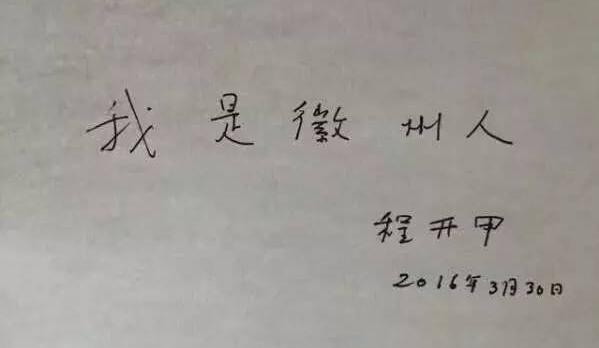 我是徽州人
程开甲
2016年3月30日